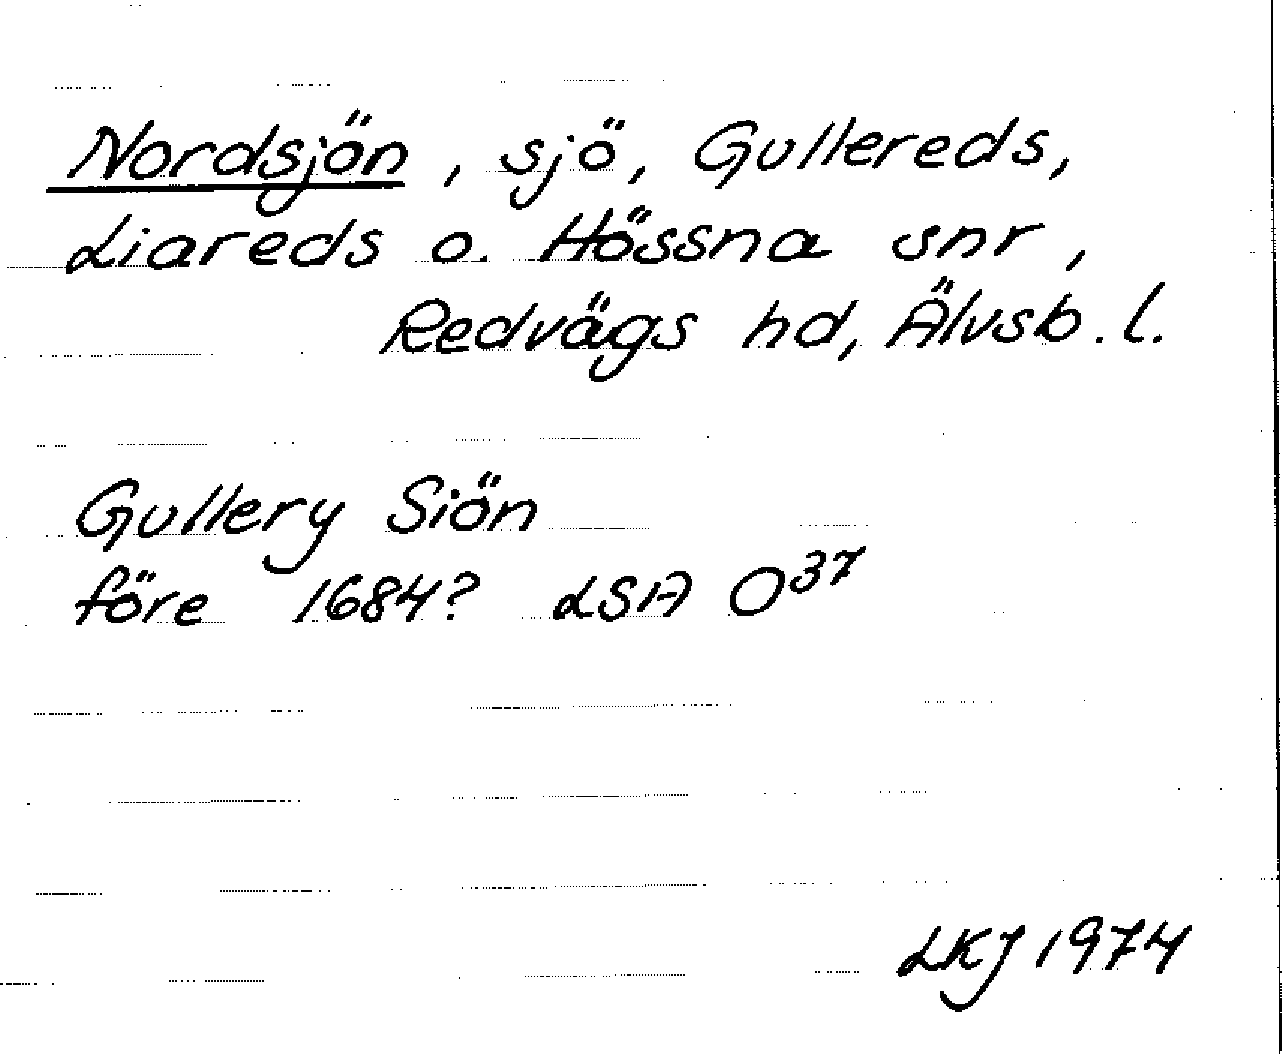 Nordsjön, sjö, Gullereds,
Liareds o. Hössna snr,
Redvägs hd, Älvsb. l.
Gullery Siön
före 1684? LSA O³⁷
LKJ 1974